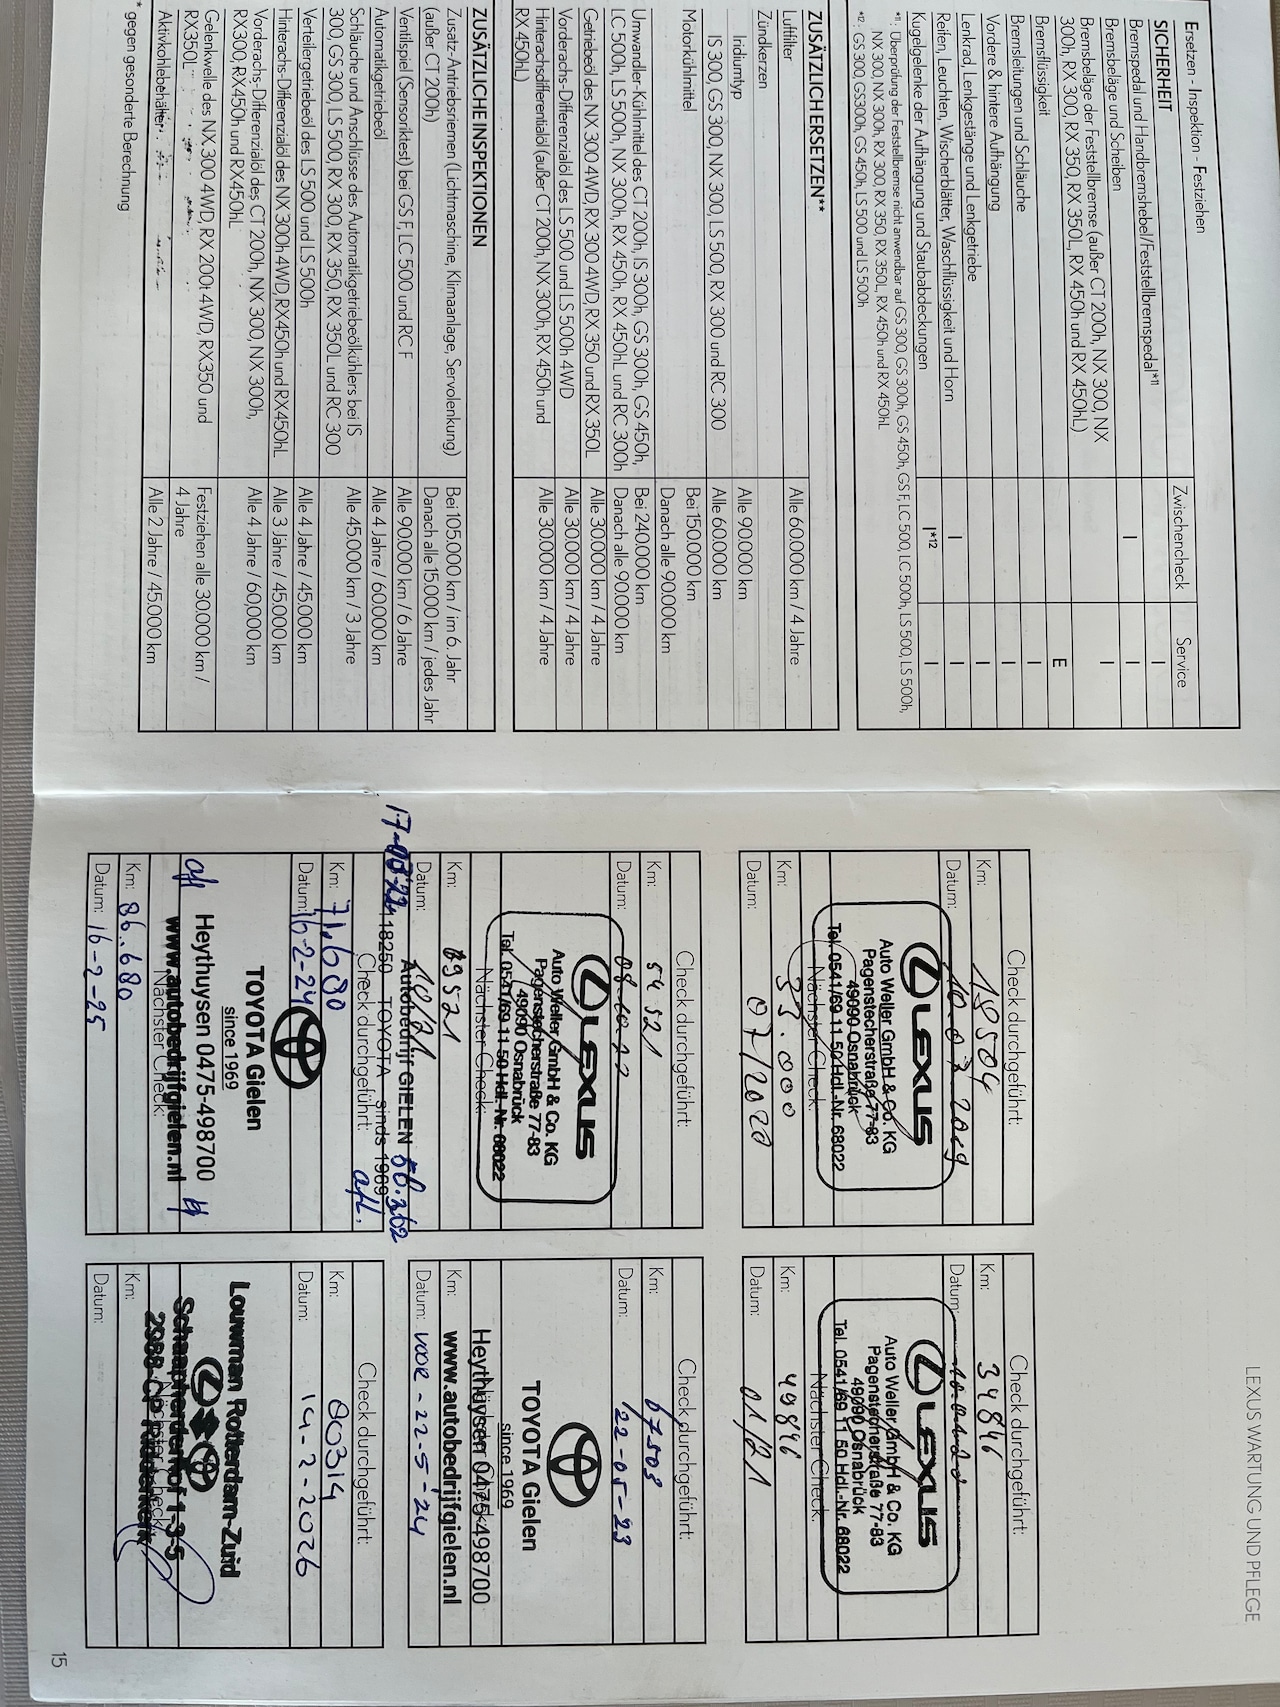 Ersetzen - Inspektion - Festziehen
Zwischencheck
Service
SICHERHEIT
Bremspedal und Handbremshebel/Feststellbremspedal*11
I
I
Bremsbeläge und Scheiben
I
I
Bremsbeläge der Feststellbremse (außer CT 200h, NX 300, NX
300h, RX 300, RX 350, RX 350L, RX 450h und RX 450hL)
I
Bremsflüssigkeit
E
Bremsleitungen und Schläuche
I
Vordere & hintere Aufhängung
I
Lenkrad, Lenkgestänge und Lenkgetriebe
I
Reifen, Leuchten, Wischerblätter, Waschflüssigkeit und Horn
I
I
Kugelgelenke der Aufhängung und Staubabdeckungen
I*12
I
*11: Überprüfung der Feststellbremse nicht anwendbar auf GS 300, GS 300h, GS 450h, GS F, LC 500, LC 500h, LS 500, LS 500h,
NX 300, NX 300h, RX 300, RX 350, RX 350L, RX 450h und RX 450hL
*12: GS 300, GS300h, GS 450h, LS 500 und LS 500h
ZUSÄTZLICH ERSETZEN**
Luftfilter
Alle 60.000 km / 4 Jahre
Zündkerzen
Iridiumtyp
Alle 90.000 km
IS 300, GS 300, NX 300, LS 500, RX 300 und RC 300
Alle 60.000 km
Motorkühlmittel
Bei 150.000 km
Danach alle 90.000 km
Umwandler-Kühlmittel des CT 200h, IS 300h, GS 300h, GS 450h,
LC 500h, LS 500h, NX 300h, RX 450h, RX 450hL und RC 300h
Bei 240.000 km
Danach alle 90.000 km
Getriebeöl des NX 300 4WD, RX 300 4WD, RX 350 und RX 350L
Alle 30.000 km / 4 Jahre
Vorderachs-Differenzialöl des LS 500 und LS 500h 4WD
Alle 30.000 km / 4 Jahre
Hinterachsdifferentialöl (außer CT 200h, NX 300h, RX 450h und
RX 450hL)
Alle 30.000 km / 4 Jahre
ZUSÄTZLICHE INSPEKTIONEN
Zusatz-Antriebsriemen (Lichtmaschine, Klimaanlage, Servolenkung)
(außer CT 200h)
Bei 105.000 km / im 6. Jahr
Danach alle 15.000 km / jedes Jahr
Ventilspiel (Sensoriktest) bei GS F, LC 500 und RC F
Alle 90.000 km / 6 Jahre
Automatikgetriebeöl
Alle 4 Jahre / 60.000 km
Schläuche und Anschlüsse des Automatikgetriebeölkühlers bei IS
300, GS 300, LS 500, RX 300, RX 350, RX 350L und RC 300
Alle 45.000 km / 3 Jahre
Verteilergetriebeöl des LS 500 und LS 500h
Alle 4 Jahre / 45.000 km
Hinterachs-Differenzialöl des NX 300h 4WD, RX450h und RX450hL
Alle 3 Jahre / 45.000 km
Vorderachs-Differenzialöl des CT 200h, NX 300, NX 300h,
RX300, RX450h und RX450hL
Alle 4 Jahre / 60.000 km
Gelenkwelle des NX 300 4WD, RX 200t 4WD, RX350 und
RX350L
Festziehen alle 30.000 km /
4 Jahre
Aktivkohlebehälter
Alle 2 Jahre / 45.000 km
* gegen gesonderte Berechnung
LEXUS WARTUNG UND PFLEGE
Check durchgeführt:
Km: 18504
Datum: 2019
LEXUS
Auto Weller GmbH & Co. KG
Pagenstecherstraße 77-83
49090 Osnabrück
Tel. 0541/69 11 50 Hdl.-Nr. 68022
Nächster Check:
Km: 33.000
Datum: 07/2020
Check durchgeführt:
Km: 34846
Datum:
LEXUS
Auto Weller GmbH & Co. KG
Pagenstecherstraße 77-83
49090 Osnabrück
Tel. 0541/69 11 50 Hdl.-Nr. 68022
Nächster Check:
Km: 49846
Datum: 01/21
Check durchgeführt:
Km: 54521
Datum:
LEXUS
Auto Weller GmbH & Co. KG
Pagenstecherstraße 77-83
49090 Osnabrück
Tel. 0541/69 11 50 Hdl.-Nr. 68022
Nächster Check:
Km: 69521
Datum:
Check durchgeführt:
Km: 67503
Datum: 22-05-23
TOYOTA Gielen
since 1969
Heythuysen 0475-498700
Nächster Check:
www.autobedrijfgielen.nl
Km:
Datum: voor -22-5-24
Autobedrijf GIELEN
18250 TOYOTA sinds 1969
Check durchgeführt:
Km: 71.680
Datum: 16-2-24
TOYOTA Gielen
since 1969
Heythuysen 0475-498700
www.autobedrijfgielen.nl
Nächster Check:
Km: 86.680
Datum: 16-2-25
Check durchgeführt:
Km: 80314
Datum: 14-2-2026
Louwman Rotterdam-Zuid
Schaapherderhof 1-3-5
2988 CP Ridderkerk
Nächster Check:
Km:
Datum:
15